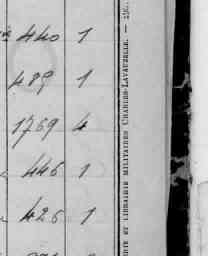 440 1
489 1
1769 4
446 1
426 1
RIE ET LIBRAIRIE MILITAIRES CHARLES-LAVAUZELLE. —